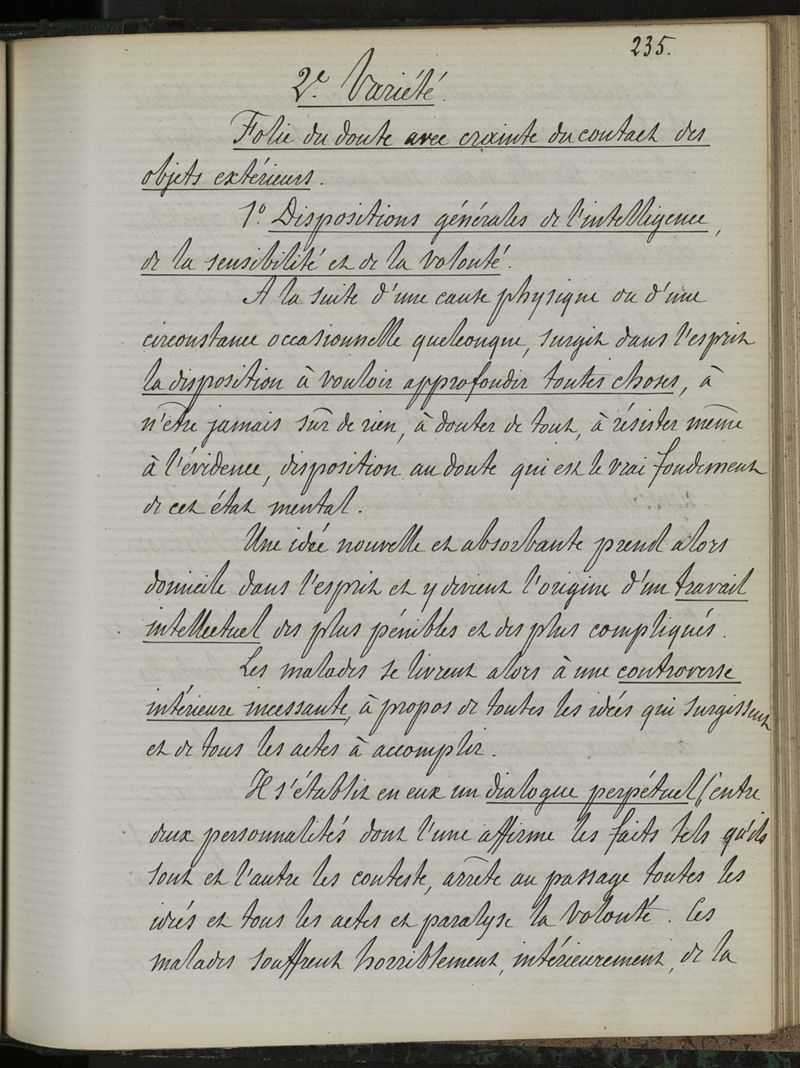 235.
2e Variété.
Folie du doute avec crainte du contact des
objets extérieurs.
1º Dispositions générales de l'intelligence,
de la sensibilité et de la volonté.
A la suite d'une cause physique ou d'une
circonstance occasionnelle quelconque, surgit dans l'esprit
la disposition à vouloir approfondir toutes choses, à
n'être jamais sûr de rien, à douter de tout, à résister même
à l'évidence, disposition au doute qui est le vrai fondement
de cet état mental.
Une idée nouvelle et absorbante prend alors
domicile dans l'esprit et y devient l'origine d'un travail
intellectuel des plus pénibles et des plus compliqués.
Les malades se livrent alors à une controverse
intérieure incessante, à propos de toutes les idées qui surgissent
et de tous les actes à accomplir.
Il s'établit en eux un dialogue perpétuel (entre
deux personnalités dont l'une affirme les faits tels qu'ils
sont et l'autre les conteste, arrête au passage toutes les
idées et tous les actes et paralyse la volonté. Ces
malades souffrent horriblement, intérieurement, de la